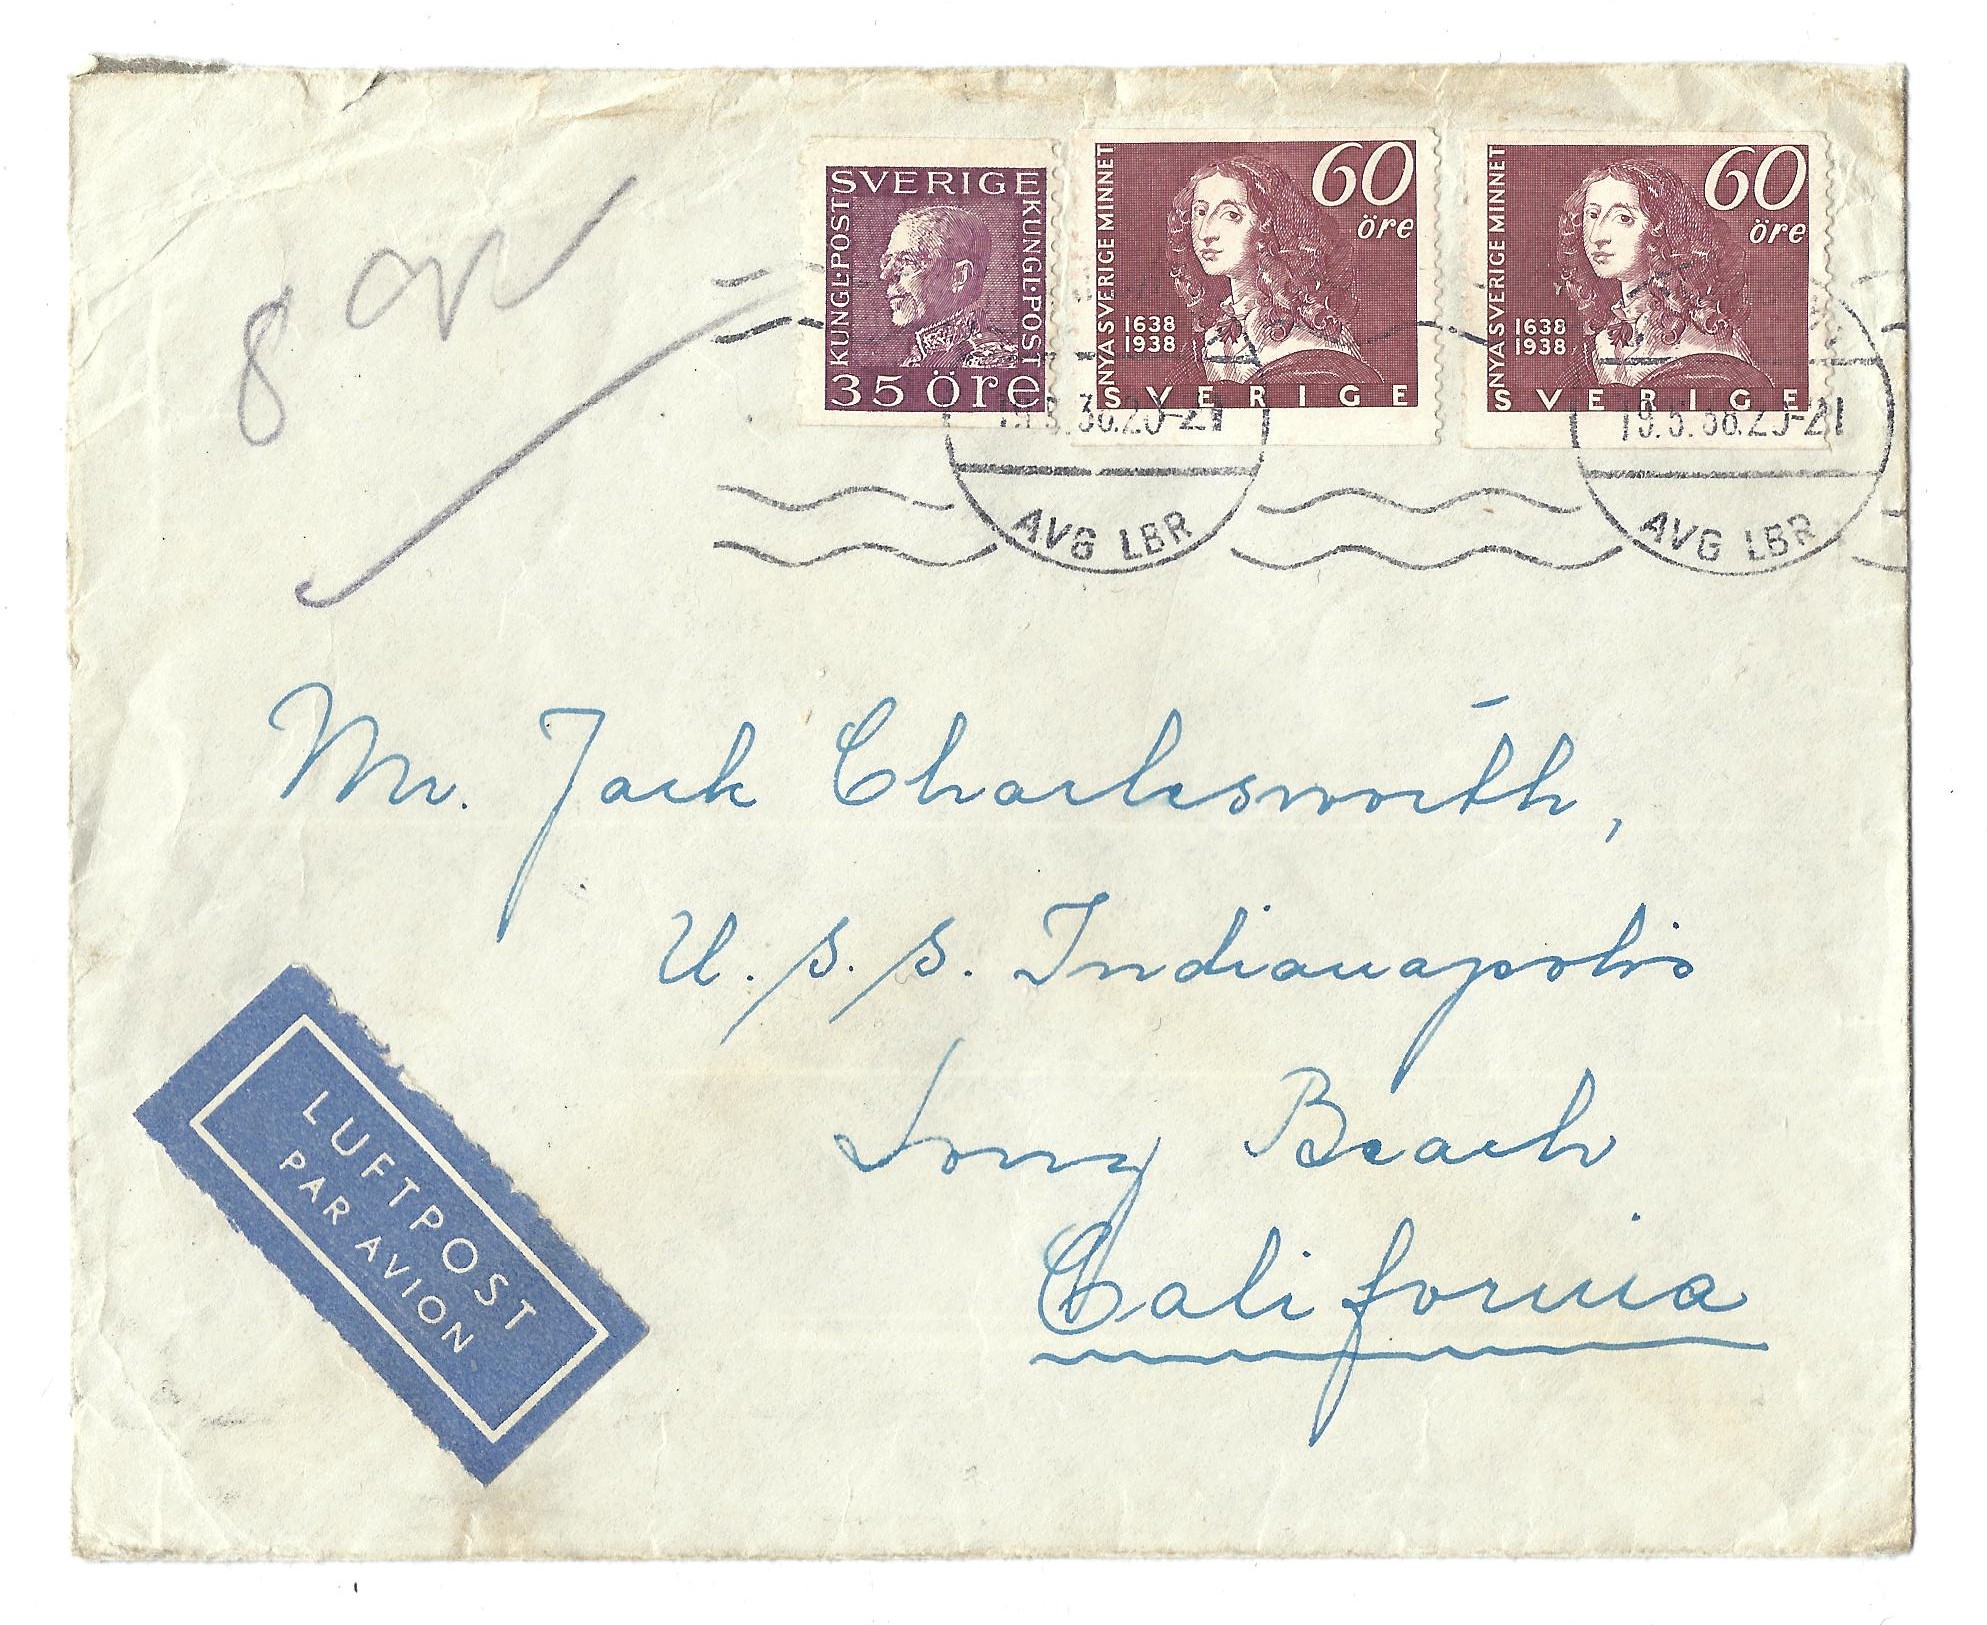 SVERIGE
KUNGL·POST
KUNGL·POST
35 öre
NYA SVERIGE MINNET
60
öre
1638
1938
SVERIGE
NYA SVERIGE MINNET
60
öre
1638
1938
SVERIGE
8
AVG LBR
19.5.38.20-21
AVG LBR
Mr. Jack Charlesworth,
U.S.S. Indianapolis
Long Beach
California
LUFTPOST
PAR AVION